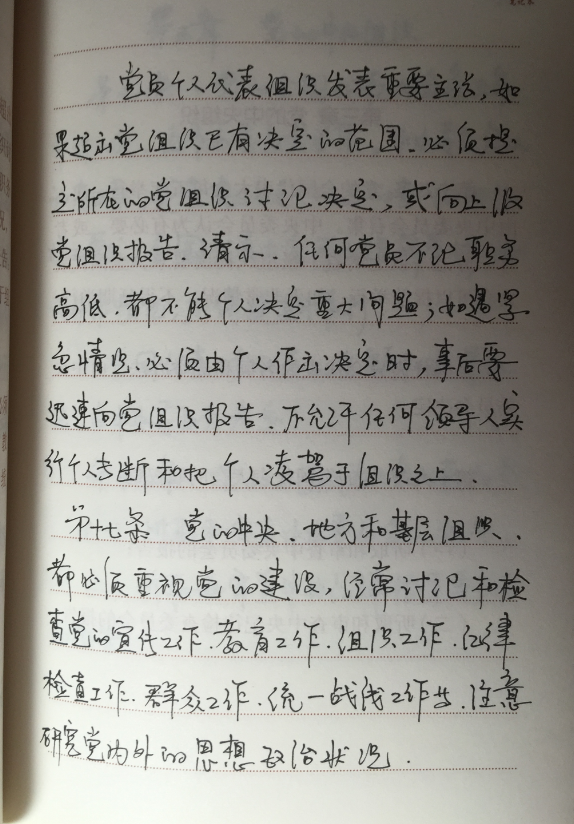 党员个人代表组织发表重要主张，如
果超出党组织已有决定的范围，必须提
交所在的党组织讨论决定，或向上级
党组织报告、请示．任何党员不论职务
高低，都不能个人决定重大问题；如遇紧
急情况，必须由个人作出决定时，事后要
迅速向党组织报告．不允许任何领导人实
行个人专断和把个人凌驾于组织之上．
第十七条　党的中央、地方和基层组织，
都必须重视党的建设，经常讨论和检
查党的宣传工作、教育工作、组织工作、纪律
检查工作、群众工作、统一战线工作等，注意
研究党内外的思想政治状况．